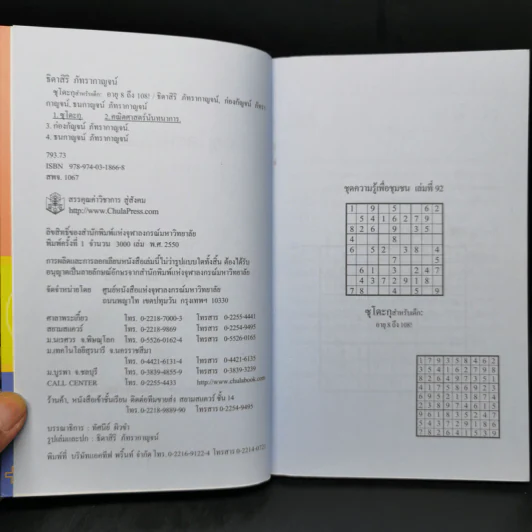 ธิดาสิริ ภัทรากาญจน์
ซูโดะกุสำหรับเด็ก: อายุ 8 ถึง 108! / ธิดาสิริ ภัทรากาญจน์, ก่องกัญจน์ ภัทรา
กาญจน์, ธนกาญจน์ ภัทรากาญจน์
1. ซูโดะกุ. 2. คณิตศาสตร์นันทนาการ.
3. ก่องกัญจน์ ภัทรากาญจน์.
4. ธนกาญจน์ ภัทรากาญจน์
793.73
ISBN 978-974-03-1866-8
สพจ. 1067
สรรคุณค่าวิชาการ สู่สังคม
http://www.ChulaPress.com
ลิขสิทธิ์ของสำนักพิมพ์แห่งจุฬาลงกรณ์มหาวิทยาลัย
พิมพ์ครั้งที่ 1 จำนวน 3000 เล่ม พ.ศ. 2550
การผลิตและการลอกเลียนหนังสือเล่มนี้ไม่ว่ารูปแบบใดทั้งสิ้น ต้องได้รับ
อนุญาตเป็นลายลักษณ์อักษรจากสำนักพิมพ์แห่งจุฬาลงกรณ์มหาวิทยาลัย
จัดจำหน่ายโดย ศูนย์หนังสือแห่งจุฬาลงกรณ์มหาวิทยาลัย
ถนนพญาไท เขตปทุมวัน กรุงเทพฯ 10330
ศาลาพระเกี้ยว โทร. 0-2218-7000-3 โทรสาร 0-2255-4441
สยามสแควร์ โทร. 0-2218-9869 โทรสาร 0-2254-9495
ม.นเรศวร จ.พิษณุโลก โทร. 0-5526-0162-4 โทรสาร 0-5526-0165
ม.เทคโนโลยีสุรนารี จ.นครราชสีมา
โทร. 0-4421-6131-4 โทรสาร 0-4421-6135
ม.บูรพา จ.ชลบุรี โทร. 0-3839-4855-9 โทรสาร 0-3839-3239
CALL CENTER โทร. 0-2255-4433 http://www.chulabook.com
ร้านค้า, หนังสือเข้าชั้นเรียน ติดต่อทีมขายส่ง สยามสแควร์ ชั้น 14
โทร. 0-2218-9889-90 โทรสาร 0-2254-9495
บรรณาธิการ : ทัศนีย์ ผิวขำ
รูปเล่มและปก : ธิดาสิริ ภัทรากาญจน์
พิมพ์ที่ บริษัทแอคทีฟ พริ้นท์ จำกัด โทร. 0-2216-9122-4 โทรสาร
ชุดความรู้เพื่อชุมชน เล่มที่ 92
1 9 5 6 2
5 4 1 6 2 7 9
8 2 6 9 3 5
4 8
6 5 2 3 8 4
7 5
6 1 3 2 4 7
4 3 7 2 9 1 8
7 8 4 5 9
ซูโดะกุสำหรับเด็ก:
อายุ 8 ถึง 108!